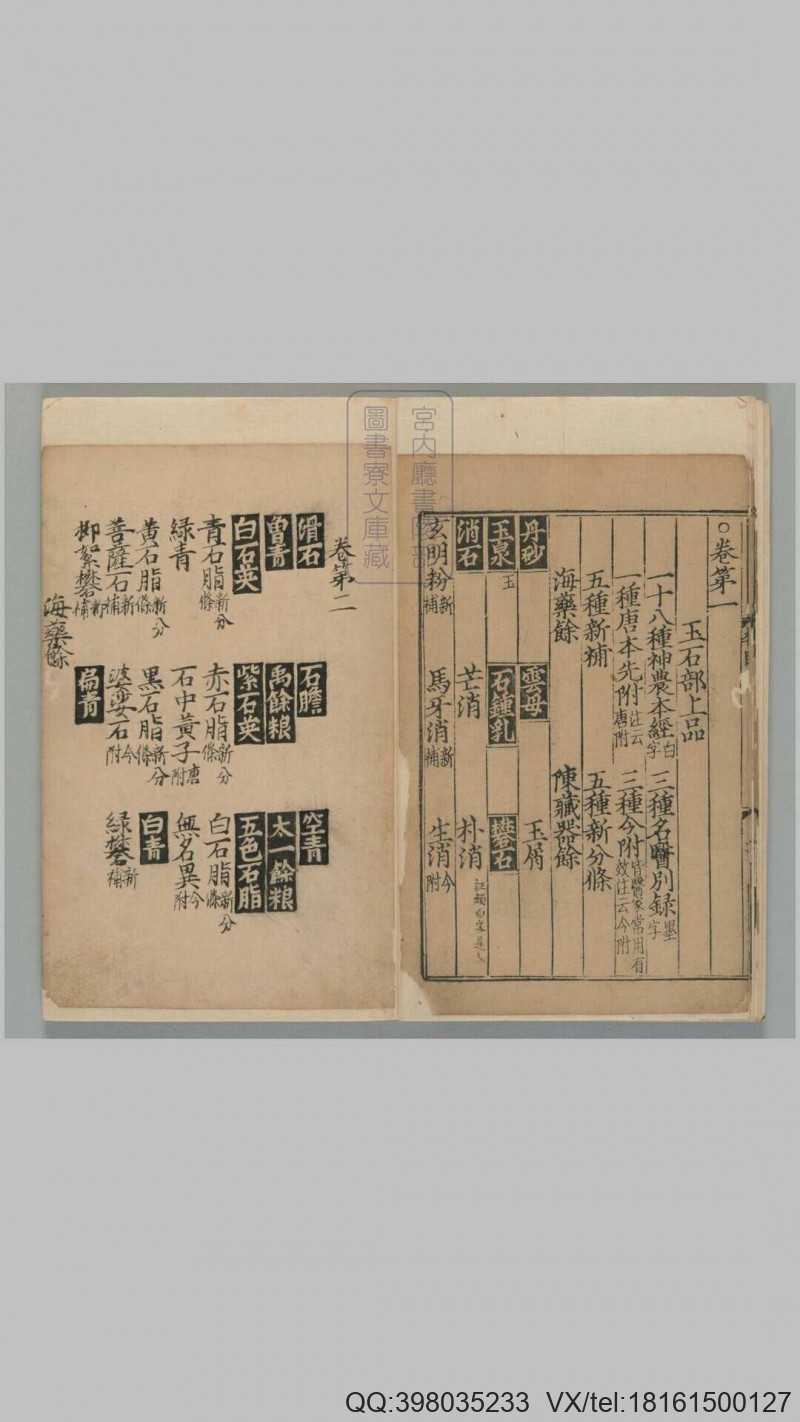 ○卷第一
玉石部上品
一十八種神農本經白字 三種名醫別録墨字
一種唐本先附注云唐附 三種今附皆醫家常用有效注云今附
五種新補 五種新分條
海藥餘 陳藏器餘
丹砂 雲母 玉屑
玉泉玉 石鍾乳 礬石
消石 芒消 朴消
玄明粉新補 馬牙消新補 生消今附
卷第二
滑石 石膽 空青
曾青 禹餘粮 太一餘粮
白石英 紫石英 五色石脂
青石脂新分條 赤石脂新分條 白石脂新分條
緑青 石中黃子唐附 無名異今附
黃石脂新分條 黑石脂新分條 白青
菩薩石新補 婆娑石今附 緑礬新補
柳絮礬新補 扁青
海藥餘
宮内廳書陵部
圖書寮文庫藏
QQ:398035233 VX/tel:18161500127